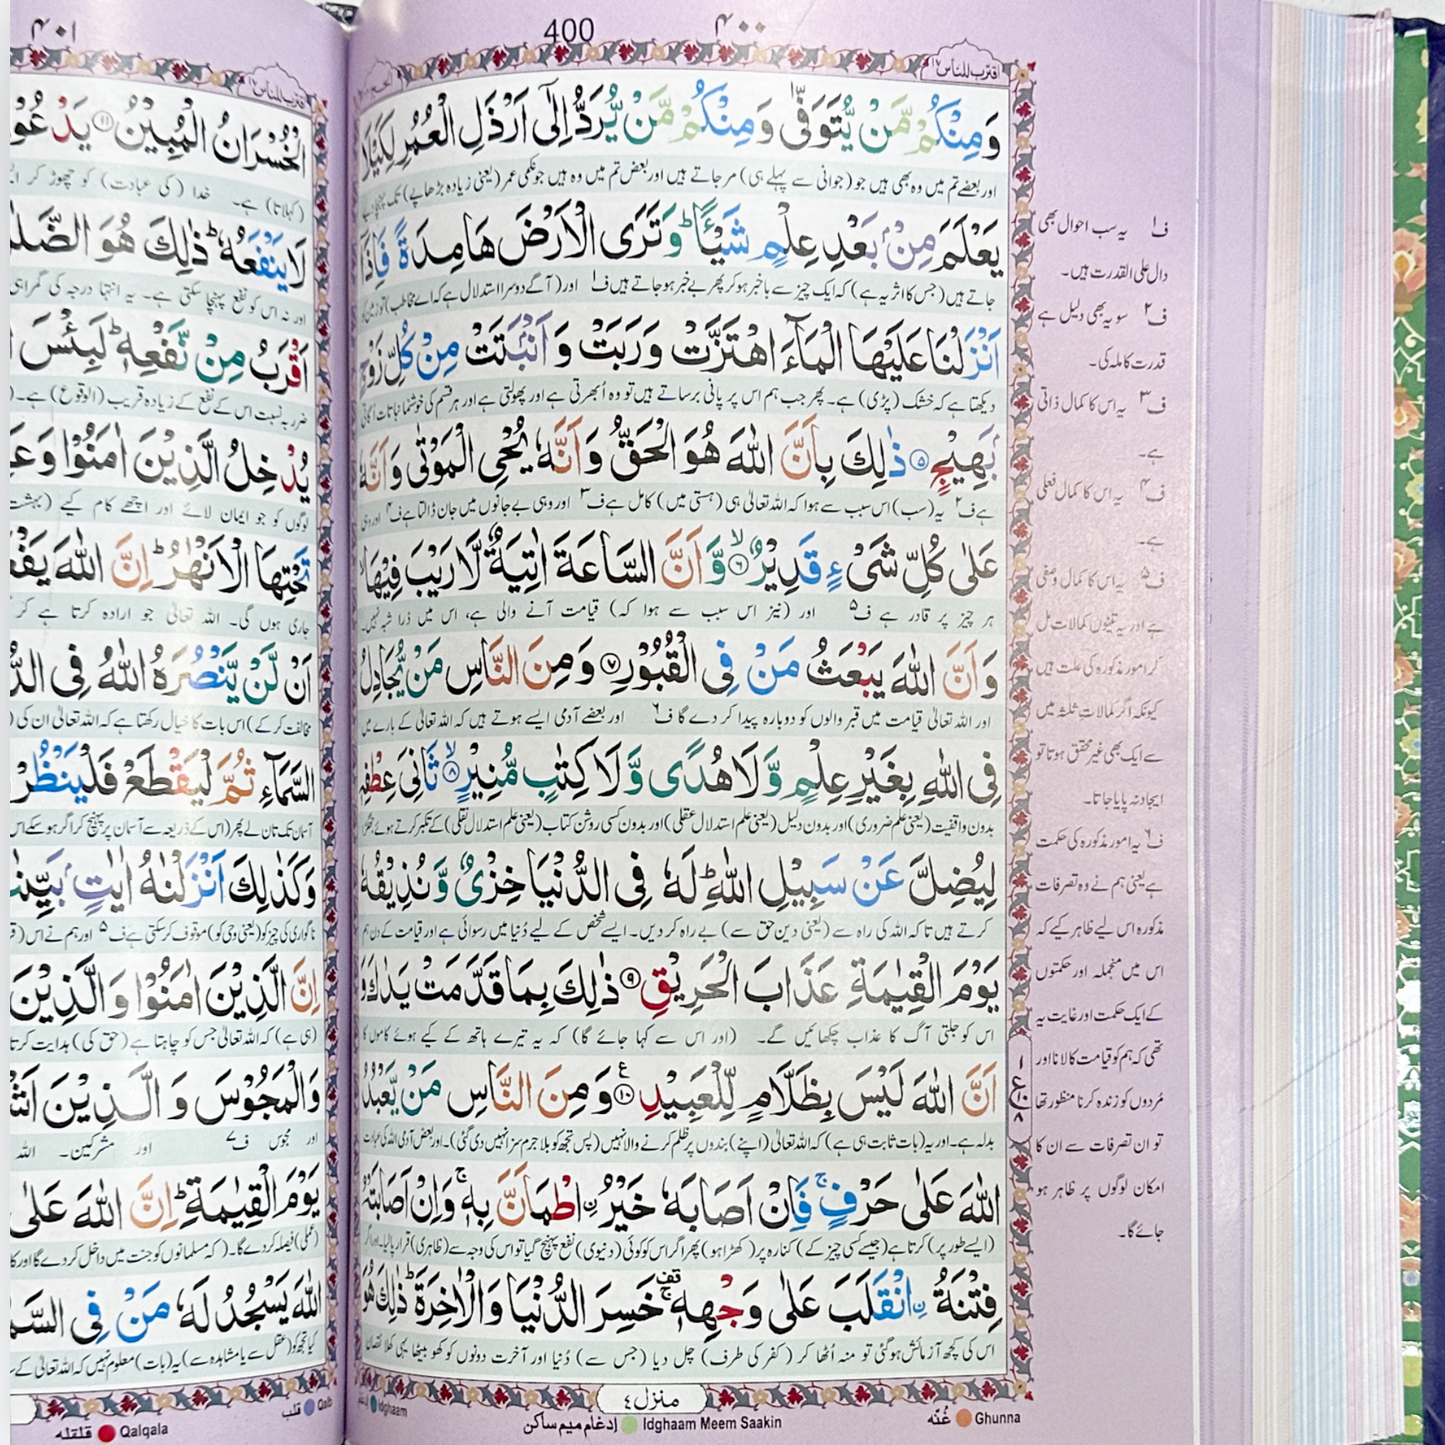 400
۴۰۰
اقترب للناس ۱۷
الحج
وَمِنْكُمْ مَّنْ يُّتَوَفّٰى وَمِنْكُمْ مَّنْ يُّرَدُّ اِلٰۤى اَرْذَلِ الْعُمُرِ لِكَيْلَا
اور بعضے تم میں وہ بھی ہیں جو (جوانی سے پہلے ہی) مر جاتے ہیں اور بعض تم میں وہ ہیں جو نکمی عمر (یعنی زیادہ بڑھاپے) تک پہنچا دیے
يَعْلَمَ مِنْۢ بَعْدِ عِلْمٍ شَيْـًٔا ؕ وَتَرَى الْاَرْضَ هَامِدَةً فَاِذَاۤ
جاتے ہیں (جس کا اثر یہ ہے) کہ ایک چیز سے باخبر ہو کر پھر بے خبر ہو جاتے ہیں ف۱ اور (آگے دوسرا استدلال ہے کہ اے مخاطب) تو زمین کو
اَنْزَلْنَا عَلَيْهَا الْمَآءَ اهْتَزَّتْ وَرَبَتْ وَاَنْۢبَتَتْ مِنْ كُلِّ زَوْجٍۭ
دیکھتا ہے کہ خشک (پڑی) ہے۔ پھر جب ہم اس پر پانی برساتے ہیں تو وہ اُبھرتی ہے اور پھولتی ہے اور ہر قسم کی خوشنما نباتات اُگاتی
بَهِيْجٍ ۵ ذٰلِكَ بِاَنَّ اللّٰهَ هُوَ الْحَقُّ وَاَنَّهٗ يُحْىِ الْمَوْتٰى وَاَنَّهٗ
ہے ف۲ یہ (سب) اس سبب سے ہوا کہ اللہ تعالیٰ ہی (ہستی میں) کامل ہے ف۳ اور وہی بے جانوں میں جان ڈالتا ہے ف۴ اور وہی
عَلٰى كُلِّ شَىْءٍ قَدِيْرٌ ۙ ۶ وَّاَنَّ السَّاعَةَ اٰتِيَةٌ لَّا رَيْبَ فِيْهَا ۙ
ہر چیز پر قادر ہے ف۵ اور (نیز اس سبب سے ہوا کہ) قیامت آنے والی ہے، اس میں ذرا شبہ نہیں۔
وَاَنَّ اللّٰهَ يَبْعَثُ مَنْ فِى الْقُبُوْرِ ۷ وَمِنَ النَّاسِ مَنْ يُّجَادِلُ
اور اللہ تعالیٰ قیامت میں قبر والوں کو دوبارہ پیدا کر دے گا ف۶ اور بعضے آدمی ایسے ہوتے ہیں کہ اللہ تعالیٰ کے بارے میں
فِى اللّٰهِ بِغَيْرِ عِلْمٍ وَّلَا هُدًى وَّلَا كِتٰبٍ مُّنِيْرٍ ۙ ۸ ثَانِىَ عِطْفِهٖ
بدون واقفیت (یعنی علم ضروری) اور بدون دلیل (یعنی علم استدلال عقلی) اور بدون کسی روشن کتاب (یعنی علم استدلال نقلی) کے تکبر کرتے ہوئے جھگڑا
لِيُضِلَّ عَنْ سَبِيْلِ اللّٰهِ ؕ لَهٗ فِى الدُّنْيَا خِزْىٌ وَّنُذِيْقُهٗ
کرتے ہیں تاکہ اللہ کی راہ سے (یعنی دین حق سے) بے راہ کر دیں۔ ایسے شخص کے لیے دُنیا میں رسوائی ہے اور قیامت کے دن ہم
يَوْمَ الْقِيٰمَةِ عَذَابَ الْحَرِيْقِ ۹ ذٰلِكَ بِمَا قَدَّمَتْ يَدٰكَ وَ
اس کو جلتی آگ کا عذاب چکھائیں گے۔ (اور اس سے کہا جائے گا) کہ یہ تیرے ہاتھ کے کیے ہوئے کاموں کا
اَنَّ اللّٰهَ لَيْسَ بِظَلَّامٍ لِّلْعَبِيْدِ ۱۰ ع وَمِنَ النَّاسِ مَنْ يَّعْبُدُ
بدلہ ہے۔ اور یہ (بات ثابت ہی ہے) کہ اللہ تعالیٰ (اپنے) بندوں پر ظلم کرنے والا نہیں (پس تجھ کو بلا جرم سزا نہیں دی گئی)۔ اور بعض آدمی اللہ کی عبادت
اللّٰهَ عَلٰى حَرْفٍ ۚ فَاِنْ اَصَابَهٗ خَيْرُ ۨاطْمَاَنَّ بِهٖ ۚ وَاِنْ اَصَابَتْهُ
(ایسے طور پر) کرتا ہے (جیسے کسی چیز کے) کنارہ پر (کھڑا ہو) پھر اگر اس کو کوئی (دنیوی) نفع پہنچ گیا تو اس کی وجہ سے (ظاہری) قرار پا لیا۔ اور اگر
فِتْنَةُ ۨانْقَلَبَ عَلٰى وَجْهِهٖ ۚ قف خَسِرَ الدُّنْيَا وَالْاٰخِرَةَ ؕ ذٰلِكَ هُوَ
اس کی کچھ آزمائش ہو گئی تو منہ اُٹھا کر (کفر کی طرف) چل دیا (جس سے) دُنیا اور آخرت دونوں کو کھو بیٹھا یہی کھلا نقصان
منزل ۴
ف۱ یہ سب احوال بھی
دال علی القدرت ہیں۔
ف۲ سو یہ بھی دلیل ہے
قدرت کاملہ کی۔
ف۳ یہ اس کا کمال ذاتی
ہے۔
ف۴ یہ اس کا کمال فعلی
ہے۔
ف۵ یہ اس کا کمال وصفی
ہے اور یہ تینوں کمالات مل
کر امور مذکورہ کی علت ہیں
کیونکہ اگر کمالات ثلثہ میں
سے ایک بھی غیر محقق ہوتا تو
ایجاد نہ پایا جاتا۔
ف۶ یہ امور مذکورہ کی حکمت
ہے یعنی ہم نے وہ تصرفات
مذکورہ اس لیے ظاہر کیے کہ
اس میں منجملہ اور حکمتوں
کے ایک حکمت اور غایت یہ
تھی کہ ہم کو قیامت کا لانا اور
مُردوں کو زندہ کرنا منظور تھا
تو ان تصرفات سے ان کا
امکان لوگوں پر ظاہر ہو
جائے گا۔
غُنَّه Ghunna
اِدغام میم ساکن Idghaam Meem Saakin
Idghaam
۴۰۱
اقترب للناس ۱۷
الْخُسْرَانُ الْمُبِيْنُ ۱۱
خدا (کی عبادت) کو چھوڑ کر
لَا يَنْفَعُهٗ ؕ ذٰلِكَ هُوَ
اور نہ اس کو نفع پہنچا سکتی ہے۔ یہ انتہا درجہ کی گمراہی
اَقْرَبُ مِنْ نَّفْعِهٖ ؕ لَبِئْسَ
ضرر بہ نسبت اس کے نفع کے زیادہ قریب (الوقوع) ہے۔
يُدْخِلُ الَّذِيْنَ اٰمَنُوْا
لوگوں کو جو ایمان لائے اور اچھے کام کیے (بہشت
تَحْتِهَا الْاَنْهٰرُ ؕ اِنَّ اللّٰهَ
جاری ہوں گی۔ اللہ تعالیٰ جو ارادہ کرتا ہے کر
اَنْ لَّنْ يَّنْصُرَهُ اللّٰهُ فِى
مخالفت کر کے) اس بات کا خیال رکھتا ہے کہ اللہ تعالیٰ ان کی
السَّمَآءِ ثُمَّ لْيَقْطَعْ فَلْيَنْظُرْ
آسمان تک تان لے پھر (اس کے ذریعہ سے آسمان پر پہنچ کر اگر ہو سکے اس
وَكَذٰلِكَ اَنْزَلْنٰهُ اٰيٰتٍۭ
ناگواری کی چیز کو (یعنی وحی کو) موقوف کر سکتی ہے ف۵ اور ہم نے اس
اِنَّ الَّذِيْنَ اٰمَنُوْا وَالَّذِيْنَ
(ہی ہے) کہ اللہ تعالیٰ جس کو چاہتا ہے (حق کی) ہدایت کرتا
وَالْمَجُوْسَ وَالَّذِيْنَ
اور مجوس ف۷ اور مشرکین۔ اللہ
يَوْمَ الْقِيٰمَةِ ؕ اِنَّ اللّٰهَ عَلٰى
(عملی) فیصلہ کر دے گا۔ (کہ مسلمانوں کو جنت میں داخل کر دے گا اور
اللّٰهَ يَسْجُدُ لَهٗ مَنْ فِى
کیا تجھ کو (عقل سے یا مشاہدہ سے) یہ (بات) معلوم نہیں کہ اللہ تعالیٰ کے
قلب Qalb
قلقله Qalqala